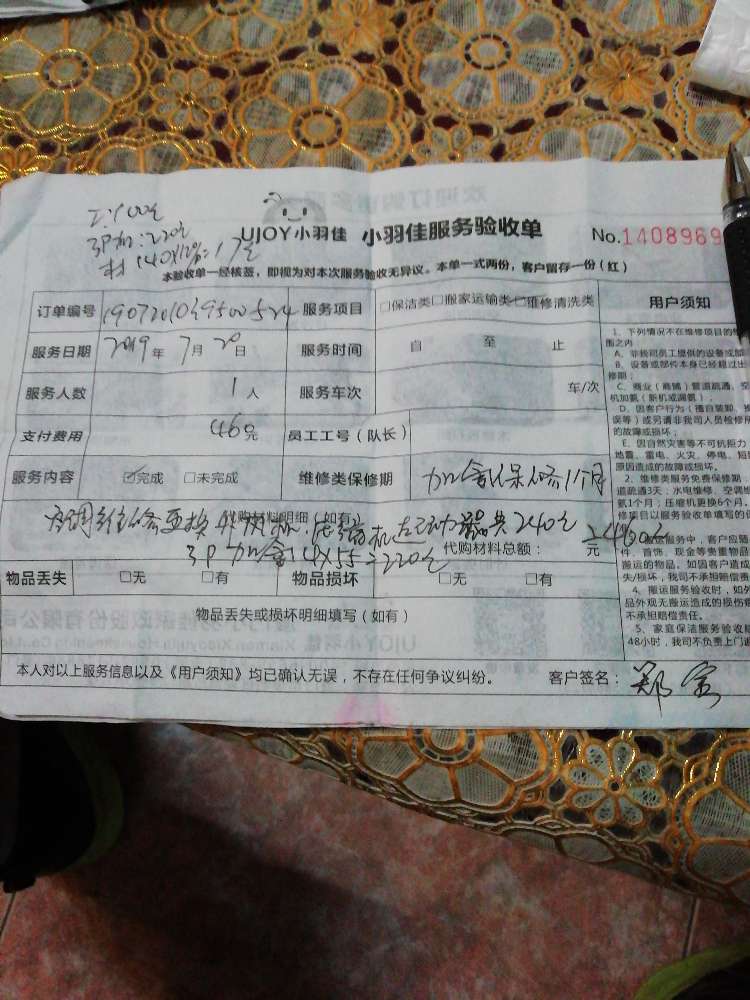 工:100元
3P加:220元
材140X12%=17元
UJOY小羽佳 小羽佳服务验收单 No.1408969
本验收单一经核签，即视为对本次服务验收无异议。本单一式两份，客户留存一份（红）
订单编号 服务项目 □保洁类□搬家运输类□维修清洗类 用户须知
服务日期 2019年7月20日 服务时间 自 至 止
服务人数 1人 服务车次 车/次
支付费用 460元 员工工号（队长）
服务内容 ☑完成 □未完成 维修类保修期 加氟保修1个月
代购材料明细（如有）
空调维修更换外风机.压缩机起动器共240元
3P加氟4X55=220元 代购材料总额： 元 =460元
物品丢失 □无 □有 物品损坏 □无 □有
物品丢失或损坏明细填写（如有）
本人对以上服务信息以及《用户须知》均已确认无误，不存在任何争议纠纷。 客户签名：
1、下列情况不在维修项目的
围之内
A、非我司员工提供的设备或
B、设备或部件本身已经超过
修期；
C、商业（商铺）管道疏通、空
机加氨（新机或漏氨）；
D、因客户行为（擅自装卸、
误等）或另请非我司人员检修
的故障或损坏；
E、因自然灾害等不可抗拒力
地震、雷电、火灾、停电、短
原因造成的故障或损坏。
2、维修类服务免费保修期
道疏通3天；水电维修、空调
氨1个月；压缩机更换6个月。
修项目以服务验收单填写的
搬运服务中，客户应随
件、首饰、现金等贵重物品
搬运的物品。如因客户造成
失/损坏，我司不承担赔偿责
4、搬运服务验收时，如外
品外观无搬运造成的损伤
不承担赔偿责任。
5、家庭保洁服务验收
48小时，我司不负责上门